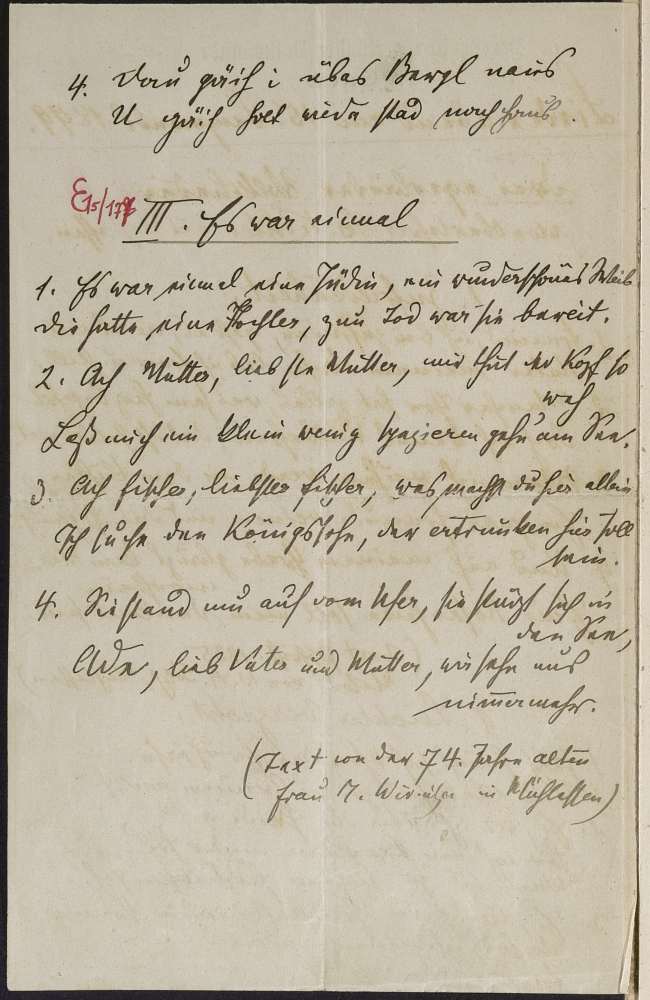 4. Dau gäih i übas Bergl naus
U gäih holt wieda stad nach haus.
E15/178
III. Es war einmal
1. Es war einmal eine Jüdin, ein wunderschönes Weib
die hatte eine Tochter, zum Tod war sie bereit.
2. Ach Mutter, liebste Mutter, mir thut der Kopf so
weh
Laß mich ein klein wenig spazieren gehn am See.
3. Ach Fischer, liebster Fischer, was machst du hier allein
Ich suche den Königssohn, der ertrunken hier soll
sein.
4. Sie stand nun auf vom Ufer, sie stürzt sich in
den See,
Ade, lieb Vater und Mutter, wir sehn uns
nimmermehr.
(Text von der 74. Jahre alten
Frau M. in Mühlessen)